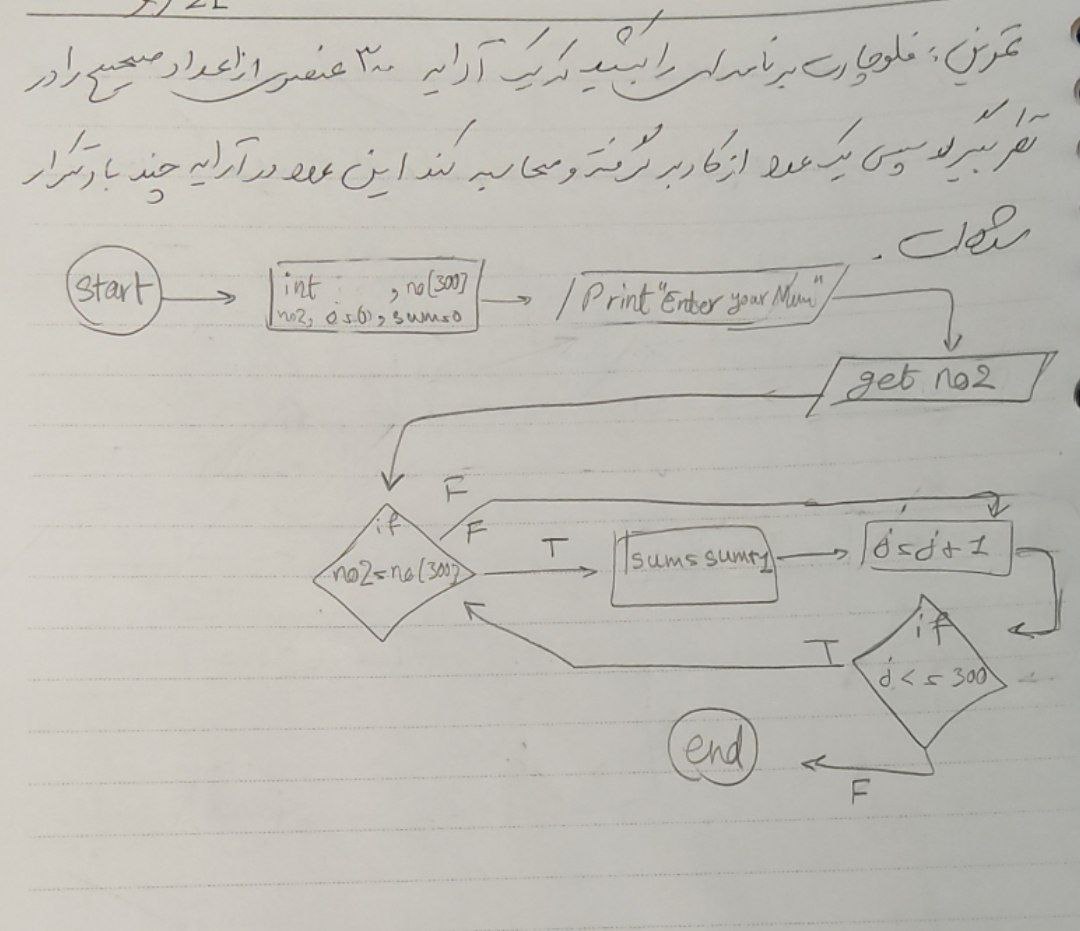 تمرین: فلوچارت برنامه‌ای را بکشید که یک آرایه ۳۰۰ عنصری از اعداد صحیح را در
نظر بگیرد سپس یک عدد از کاربر گرفته و محاسبه کند این عدد در آرایه چند بار تکرار
شده است.
start
int , no[300]
no2, j=0, sum=0
Print "Enter your Num"
get no2
F
if
F
T
no2=no[300]
sum=sum+1
j=j+1
if
T
j<=300
end
F